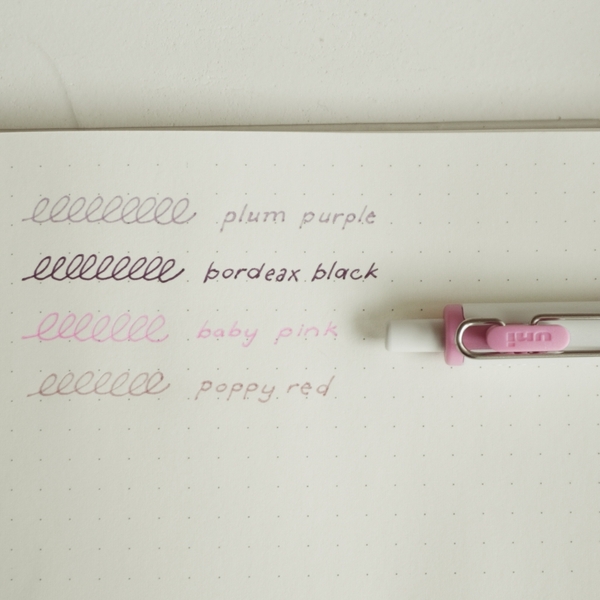 plum purple
bordeax black
baby pink
poppy red
uni